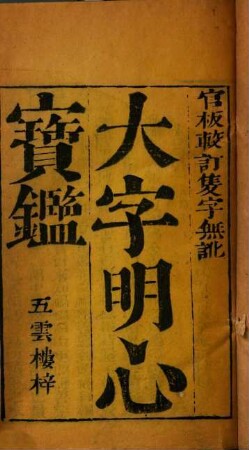 官板較訂隻字無訛
大字明心
寶鑑
五雲樓梓